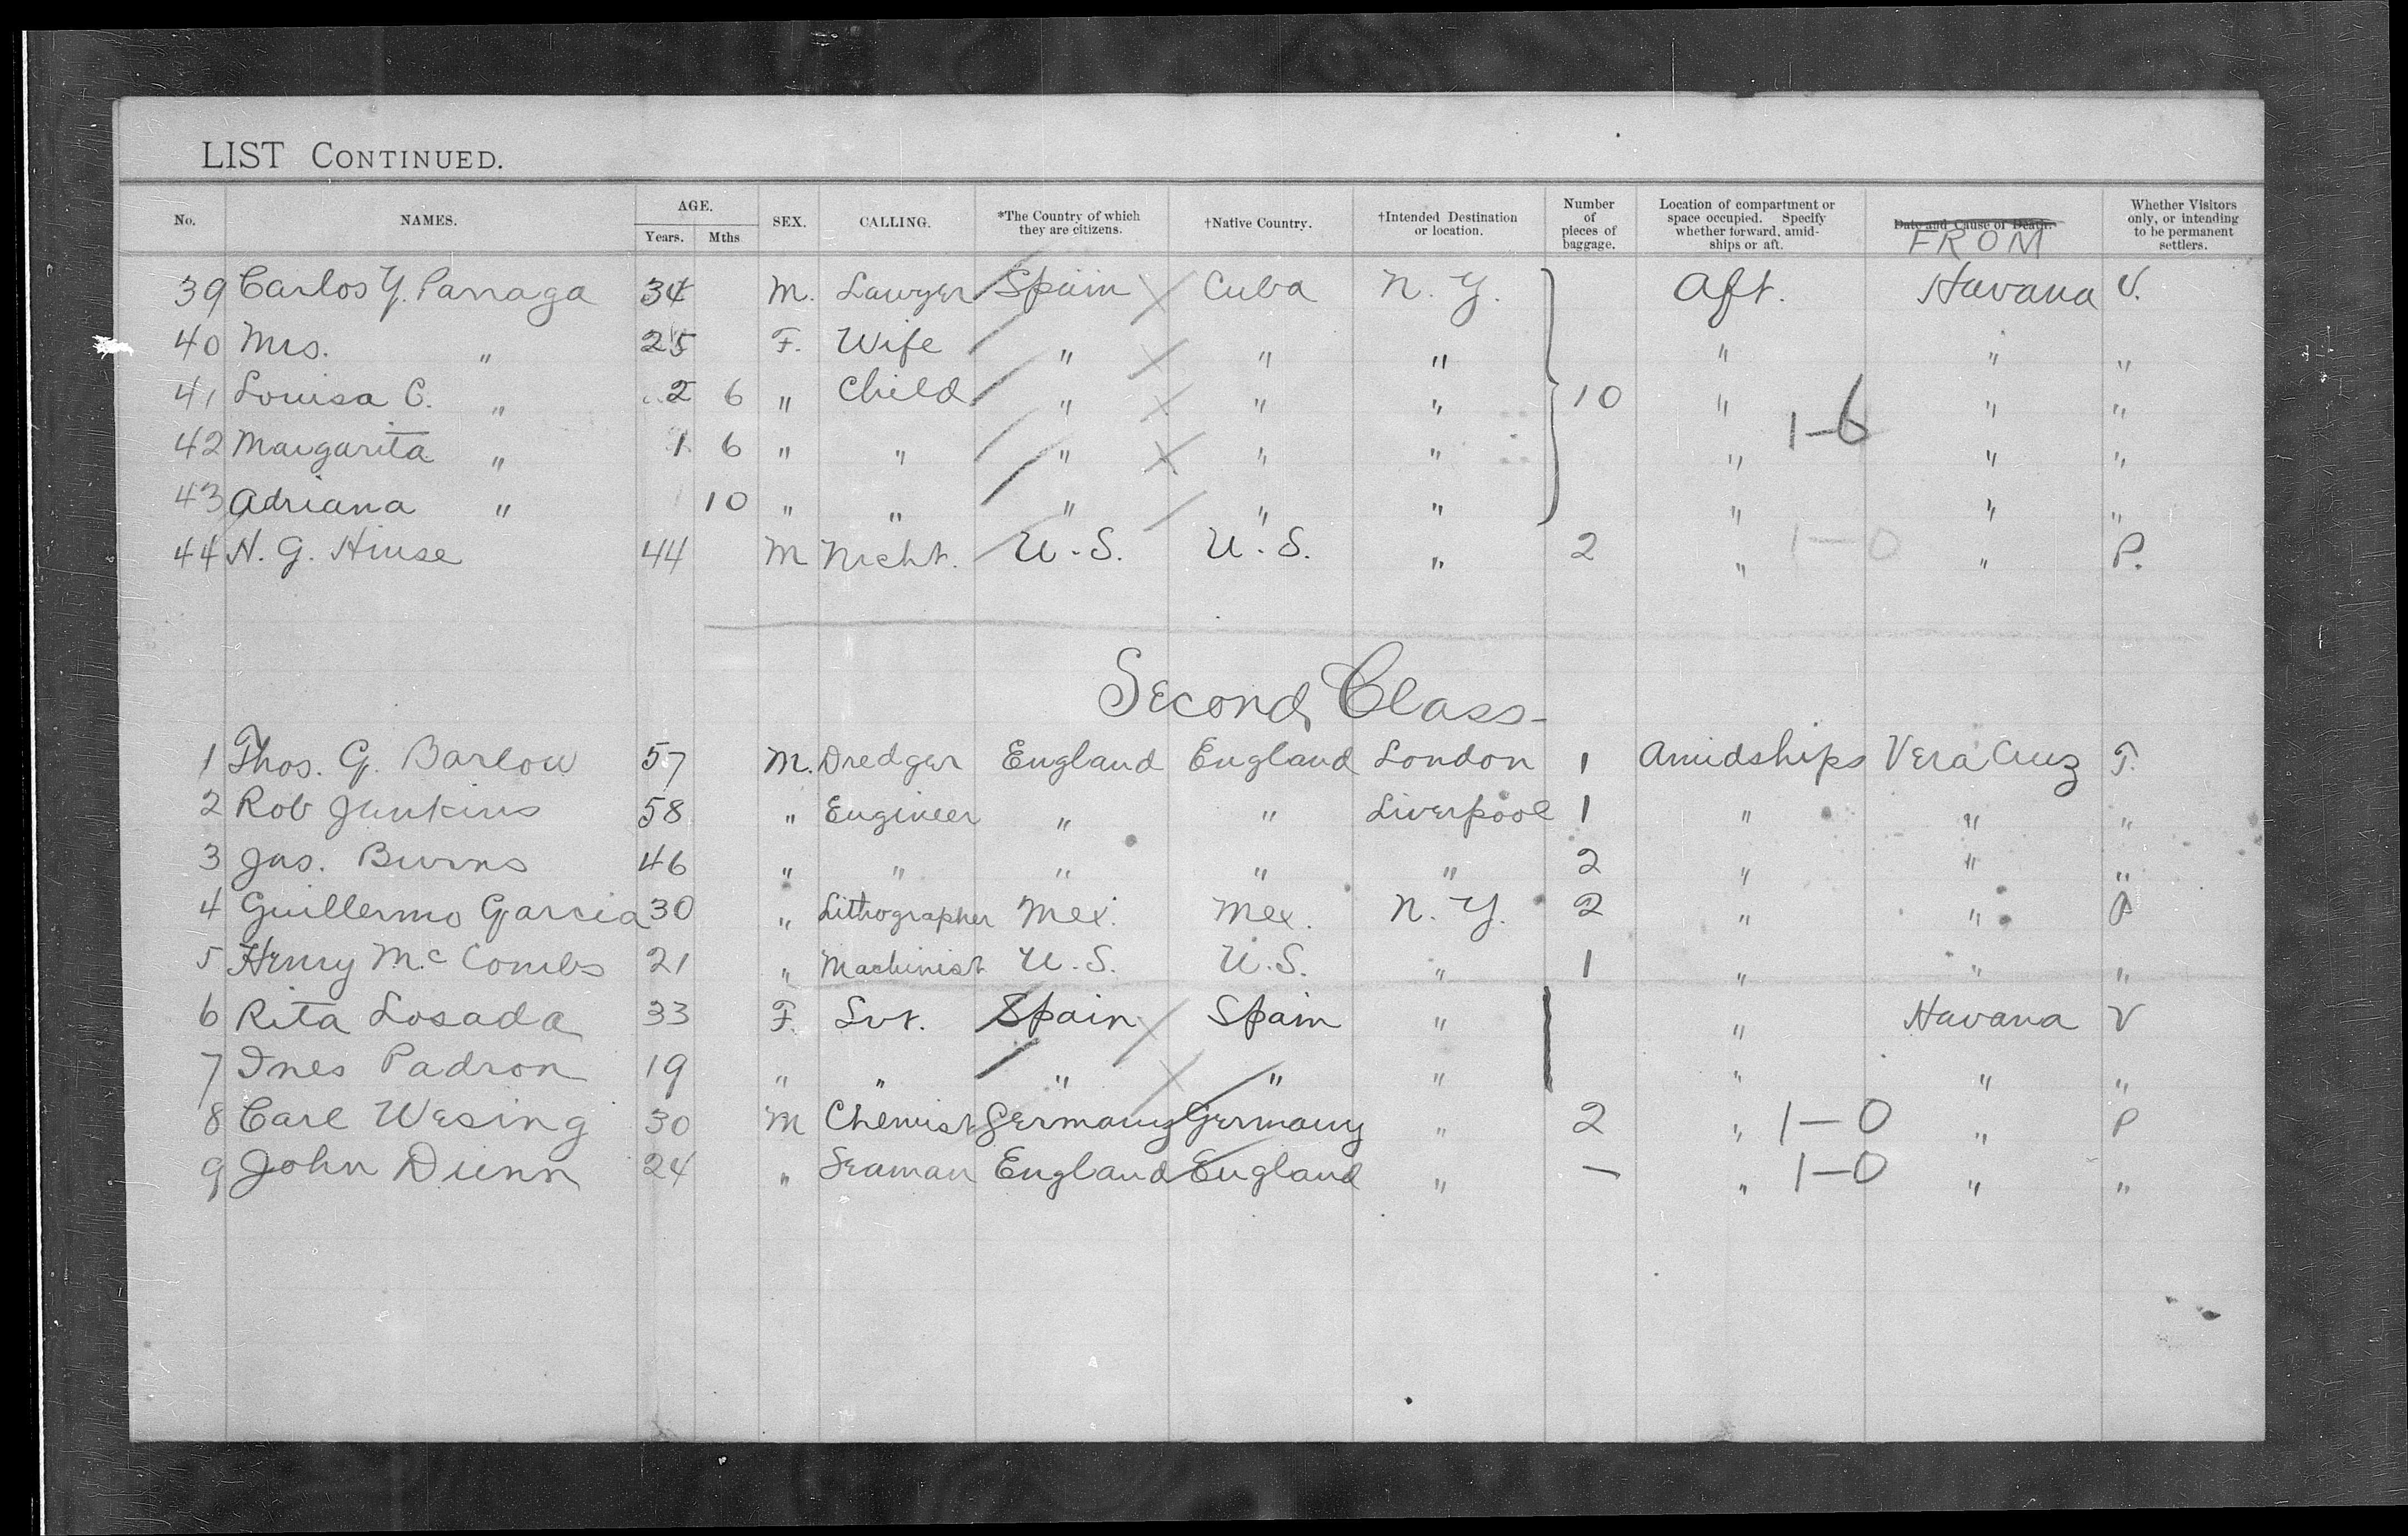 LIST CONTINUED.
No. NAMES. AGE. Years. Mths SEX. CALLING. *The Country of which they are citizens. †Native Country. †Intended Destination or location. Number of pieces of baggage. Location of compartment or space occupied. Specify whether forward, amidships or aft. Date and Cause of Death. FROM Whether Visitors only, or intending to be permanent settlers.
39 Carlos Y. Parraga 34 M. Lawyer Spain Cuba N. Y. Aft. Havana V.
40 Mrs. " 25 F. Wife " " " " " "
41 Louisa C. " 2 6 " Child " " " 10 " " "
1-6
42 Margarita " 1 6 " " " " " " " "
43 Adriana " 10 " " " " " " " "
44 H. G. Hinse 44 M Mcht. U.S. U.S. " 2 " 1-0 " P.
Second Class-
1 Thos. G. Barlow 57 M. Dredger England England London 1 Amidships Vera Cruz T.
2 Rob Jenkins 58 " Engineer " " Liverpool 1 " " "
3 Jas. Burns 46 " " " " " 2 " " "
4 Guillermo Garcia 30 " Lithographer Mex. Mex. N. Y. 2 " " P
5 Henry McCombs 21 " Machinist U.S. U.S. " 1 " " "
6 Rita Losada 33 F. Svt. Spain Spain " " Havana V
7 Ines Padron 19 " " " " " " " "
8 Carl Wesing 30 M Chemist Germany Germany " 2 " 1-0 " P
9 John Dunn 24 " Seaman England England " — " 1-0 " "